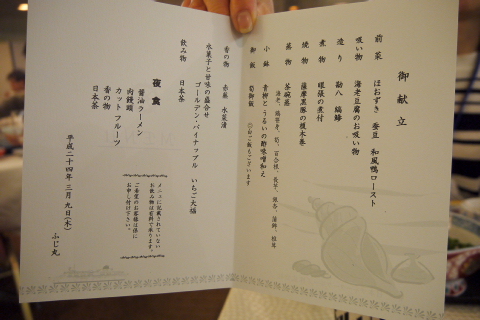 御献立
前菜 ほおずき 蚕豆 和風鴨ロースト
吸い物 海老豆腐のお吸い物
造り 勘八 縞鯵
煮物 眼張の煮付
焼物 薩摩黒豚の榎木巻
蒸物 茶碗蒸
海老、鶏笹身、筍、百合根、長芋、銀杏、蒲鉾、椎茸
小鉢 青柳とうるいの酢味噌和え
御飯 筍御飯 ○白ご飯もございます
香の物 赤蕪 水菜漬
水菓子と甘味の盛合せ
ゴールデン・パイナップル いちご大福
飲み物 日本茶
夜食
醤油ラーメン
肉饅頭
カットフルーツ
香の物
日本茶
メニューに記載されていない
お飲み物は有料で承ります。
ご希望のお客様は係に
お申し付け下さい。
平成二十四年三月九日(木) ふじ丸